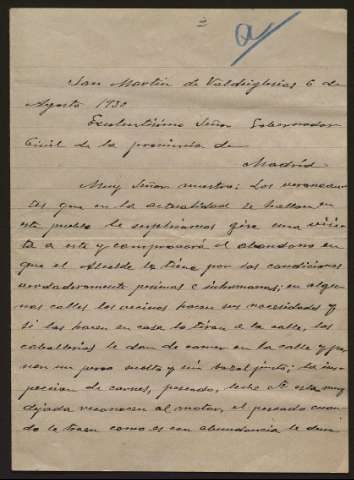 a
San Martin de Valdeiglesias 6 de
Agosto 1930
Exelentisimo Señor Gobernador
Civil de la provincia de
Madrid
Muy Señor nuestro: Los veranean-
tes que en la actualidad se hallan en
este pueblo le suplicamos gire una visi-
ta a este y comprovará el abandono en
que el Alcalde lo tiene por las condiciones
verdaderamente pesimas e inhumanas; en algu-
nas calles los vecinos hacen sus necesidades y
si las hacen en casa lo tiran a la calle, las
caballerias le dan de comer en la calle y po-
nen un perro suelto y sin bozal junto; la ins-
pecion de carnes, pescado, leche etc esta muy
dejada reconocen al matar, el pescado cuan-
do lo traen como es con abundancia le dan